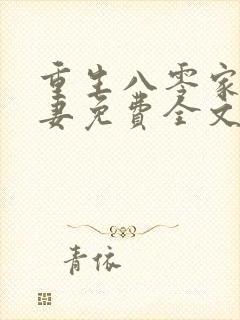 重生八零家
妻免费全文
青依